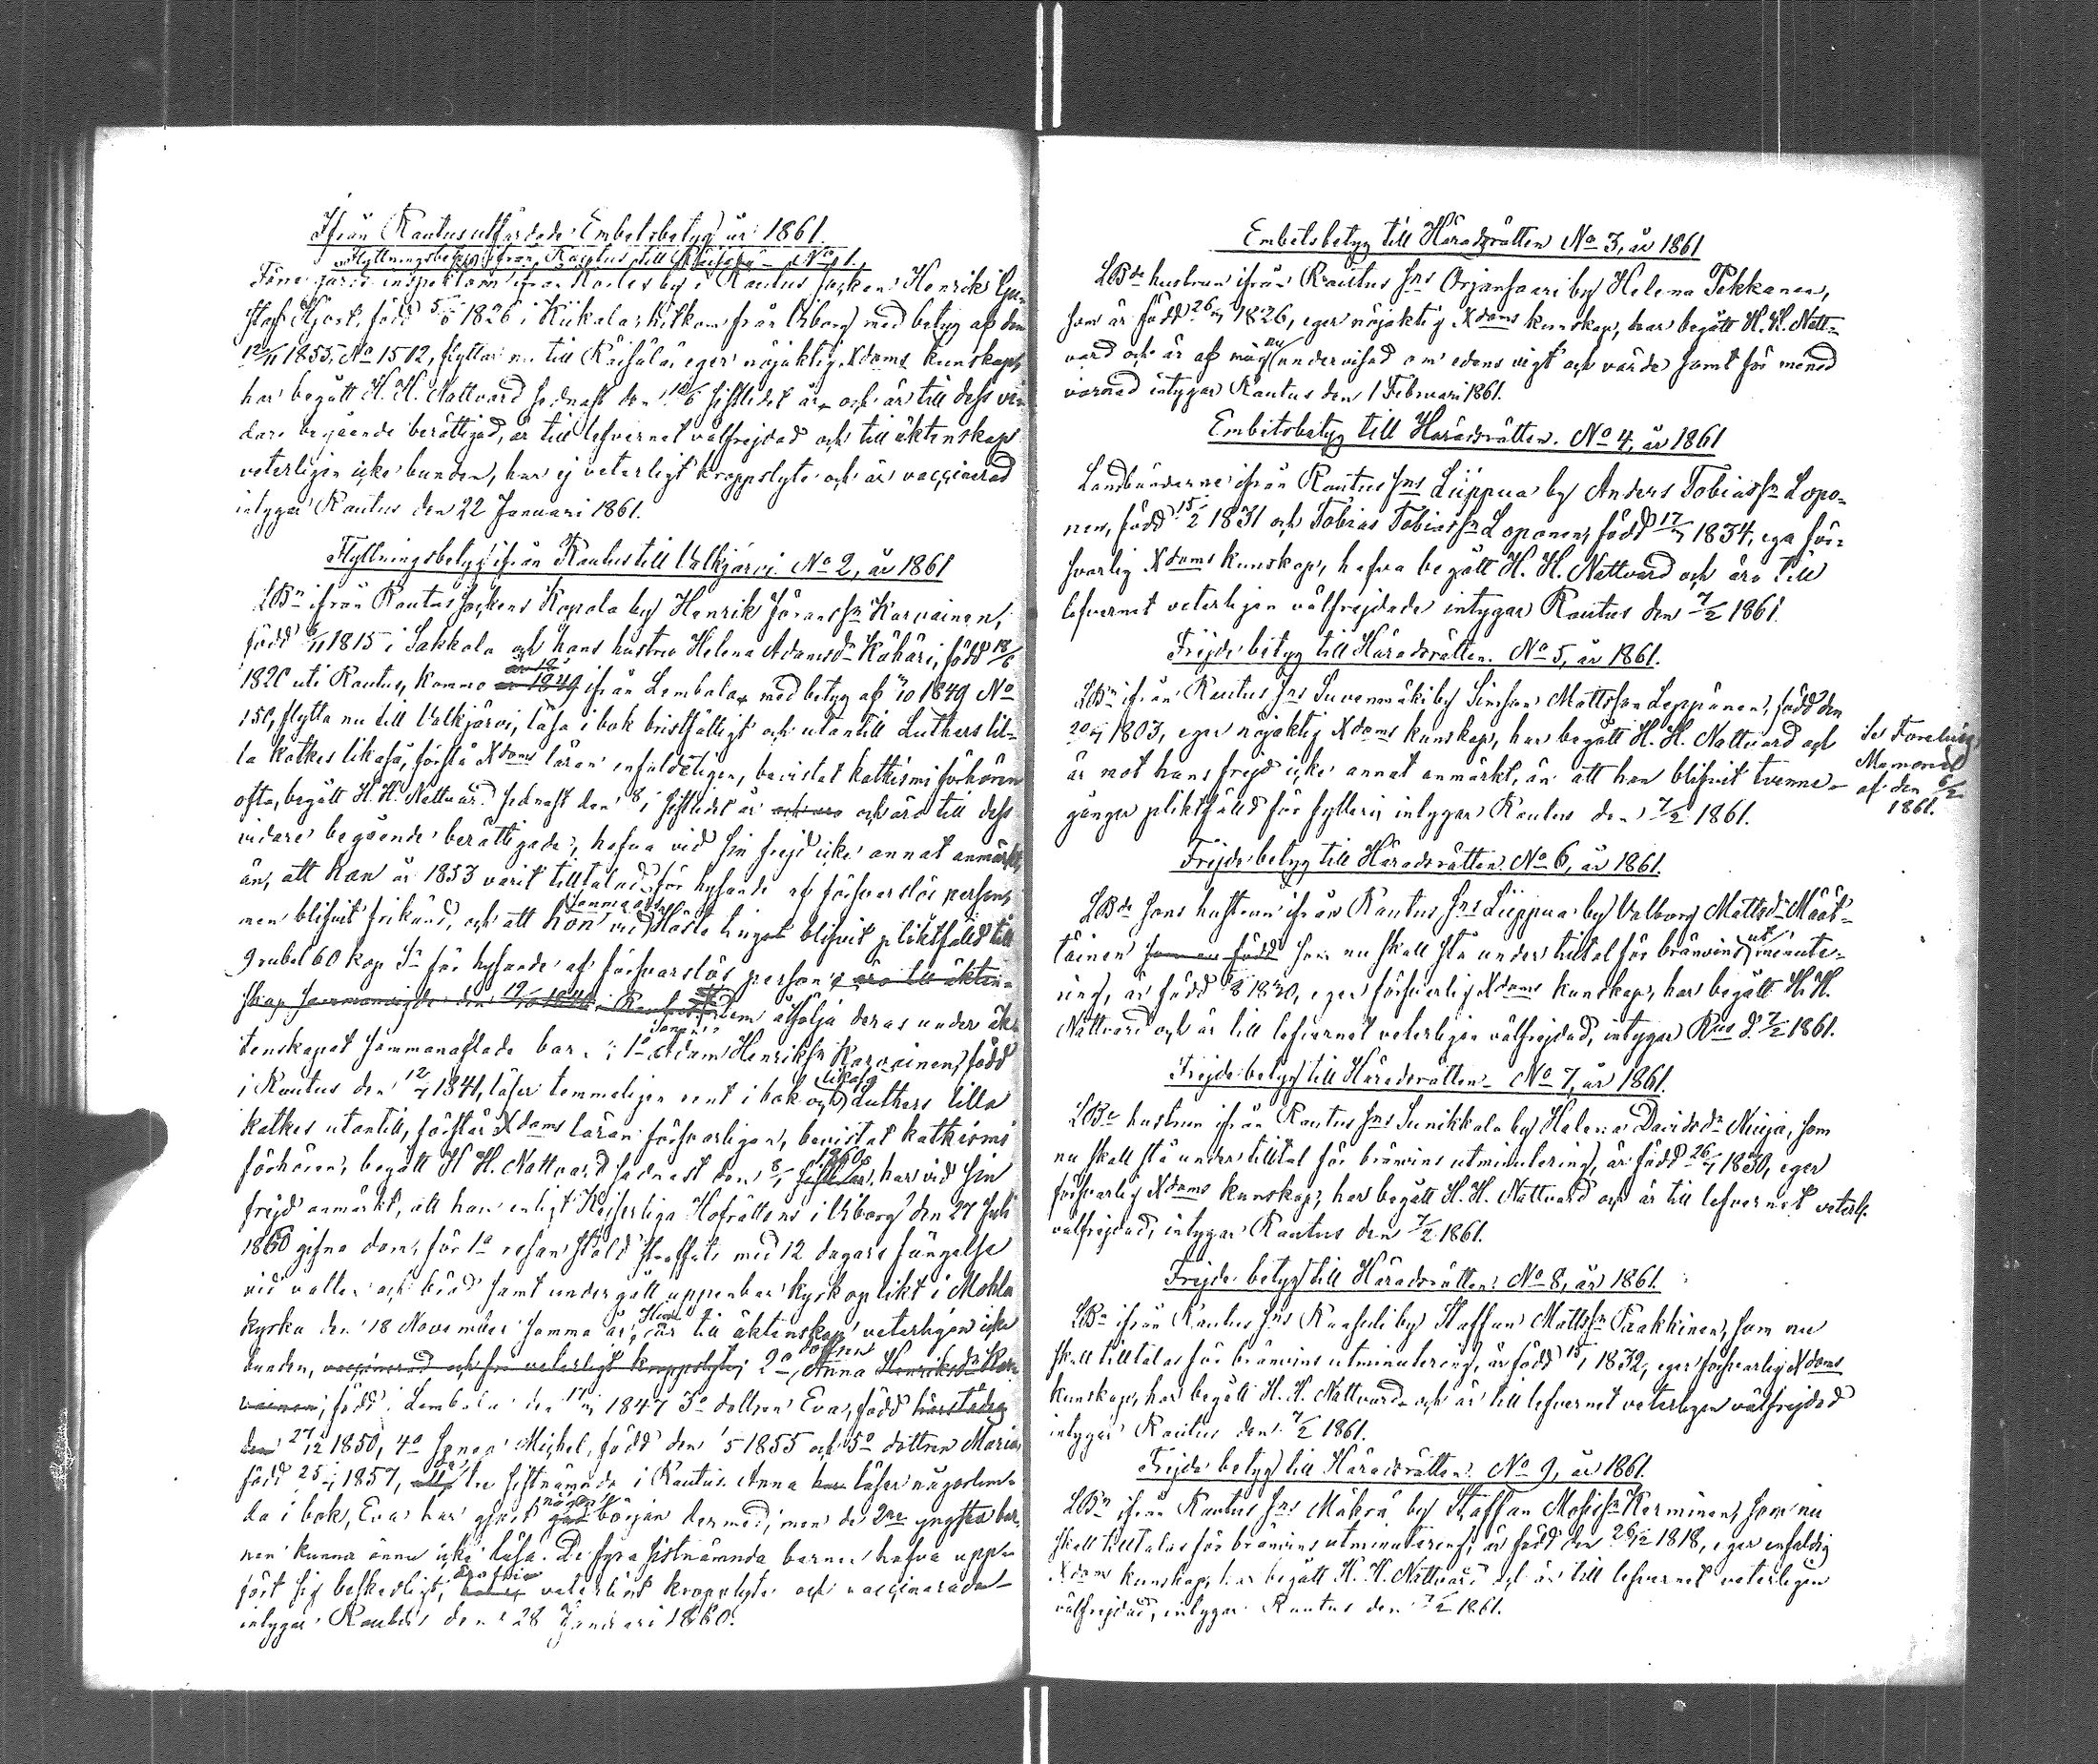 Ifrån Rautus utfärdade Embetsbetyg år 1861.
Flyttningsbetyg ifrån Rautus till Räisälä No 1.
inspektorn ifrån by i Rautus socken Henrik Gu-
staf Hjort, född 1826 i Kiikala, hitkom från Wiborg med betyg af den
12/11 1855, No 1512, flyttar nu till Räisälä, eger nöjaktig Xdoms kunskap,
har begått H. H. Nattvard sednast den sistlidet år och är till dess vi-
dare begående berättigad, är till lefvernet välfrejdad och till äktenskap
veterligen icke bunden, har ej veterligt kroppslyte och är vaccinerad
intygar Rautus den 22 Januari 1861.
Flyttningsbetyg ifrån Rautus till Walkjärvi No 2, år 1861
LBn ifrån Rautus sockens Kopala by Henrik Karvainen,
född 1815 i Sakkola och hans hustru Helena Adamsdr Kähäri, född 18/6
1820 uti Rautus, komne år 1849 ifrån Lembala med betyg af 1849 No
150, flytta nu till Walkjärvi, läsa i bok bristfälligt och utantill Luthers lil-
la katkes likaså, förstå Xdoms läran enfaldeligen, bevistat katkismi förhören
ofta, begått H. H. Nattvard sednast den sistlidet år och äro och äro till dess
vidare begående berättigade, hafva vid sin frejd icke annat anmärkt,
än, att han år 1853 varit tilltalad för hysande af försvarslös person,
men blifvit frikänd, och att hon vid Höste tinget blifvit pliktfälld till
9 rubel 60 kop Sr för hysande af försvarslös person, äro till äkten-
skap i Rautus dem åtfölja deras under äk-
tenskapet sammanaflade barn: 1o sonen Adam Henriksn Karvainen, född
i Rautus den 1841, läser temmeligen rent i bok och likaså Luthers lilla
katkes utantill, förstår Xdoms läran försvarligen, bevistat katkismi
förhören, begått H. H. Nattvard sednast den 1860, har vid sin
frejd anmärkt, att han enligt Keiserliga Hofrättens i Wiborg den 27 Juli
1860 gifne dom, för 1a resan stöld straffats med 12 dagars fängelse
vid vatten och bröd samt undergått uppenbar kyrkoplikt i Mohla
kyrka den 18 November samma år, är till äktenskap veterligen icke
bunden, vaccinerad och fri veterligt kroppslyte; 2o dottren Anna Henriksdr Kar-
vainen, född i Lembala den 1847 3o dottren Eva, född härstädes
den 27/12 1850, 4o sonen Michel, född den 1855 och 5o dottren Maria,
född 1857, alla de tre sistnämnda i Rautus. Anna har läser någorlun-
da i bok, Eva har gjort början dermed, men de 2ne yngsta bar-
nen kunna ännu icke läsa. De fyra sistnämnda barnen hafva upp-
fört sig beskedligt, äro fria veterligt kroppslyte och vaccinerade
intygar Rautus den 28 Januari 1860.
Embetsbetyg till Häradsrätten No 3, år 1861
LBde hustrun ifrån Rautus sns Orjansaari by Helena Pekkanen,
som är född 1826, eger nöjaktig Xdoms kunskap, har begått H. H. Natt-
vard och är af mig nu undervisad om edens vigt och värde samt för mened
varnad intygar Rautus den 1 Februari 1861.
Embetsbetyg till Häradsrätten. No 4, år 1861
Landbönderne ifrån Rautus sns Liippua by Anders Tobiassn Lopo-
nen, född 15/2 1831 och Tobias Tobiassn Loponen, född 1834, ega för-
svarlig Xdoms kunskap, hafva begått H. H. Nattvard och äro till
lefvernet veterligen välfrejdade intygar Rautus den 7/2 1861.
Frejde betyg till Häradsrätten. No 5, år 1861.
LBn ifrån Rautus sns Suvenmäki by Simon Mattsson Leppänen, född den
1803, eger nöjaktig Xdoms kunskap, har begått H. H. Nattvard och
är mot hans frejd icke annat anmärkt, än att han blifvit tvenne
gånger pliktfälld för fylleri intygar Rautus den 7/2 1861.
Se
Memorial
af den 6/2
1861.
Frejde betyg till Häradsrätten. No 6, år 1861.
LBde sons hustrun ifrån Rautus sns Liippua by Walborg Mattsdr Määt-
täinen som nu skall stå under tiltal för bränvins utminute-
ring, är född 1820, eger försvarlig Xdoms kunskap, har begått H. H.
Nattvard och är till lefvernet veterligen välfrejdad, intygar Rus d. 7/2 1861.
Frejde betyg till Häradsrätten No 7, år 1861.
LBde hustrun ifrån Rautus sns Sunikkala by Helena Davidsdr Ninja, som
nu skall stå under tilltal för bränvins utminutering, är född 1830, eger
försvarlig Xdoms kunskap, har begått H. H. Nattvard och är till lefvernet veterl.
välfrejdad, intygar Rautus den 7/2 1861.
Frejde betyg till Häradsrätten. No 8, år 1861.
LBn ifrån Rautus sns Raasuli by Staffan Mattssn Paakkinen, som nu
skall tilltalas för bränvins utminutering, är född 1832, eger försvarlig Xdoms
kunskap, har begått H. H. Nattvard och är till lefvernet veterligen välfrejdad
intygar Rautus den 7/2 1861.
Frejde betyg till Häradsrätten. No 9, år 1861.
LBn ifrån Rautus sns Mäkrä by Staffan Mosissn Kerminen, som nu
skall tilltalas för bränvins utminutering, är född den 26/12 1818, eger enfaldig
Xdoms kunskap, har begått H. H. Nattvard och är till lefvernet veterligen
välfrejdad, intygar Rautus den 7/2 1861.